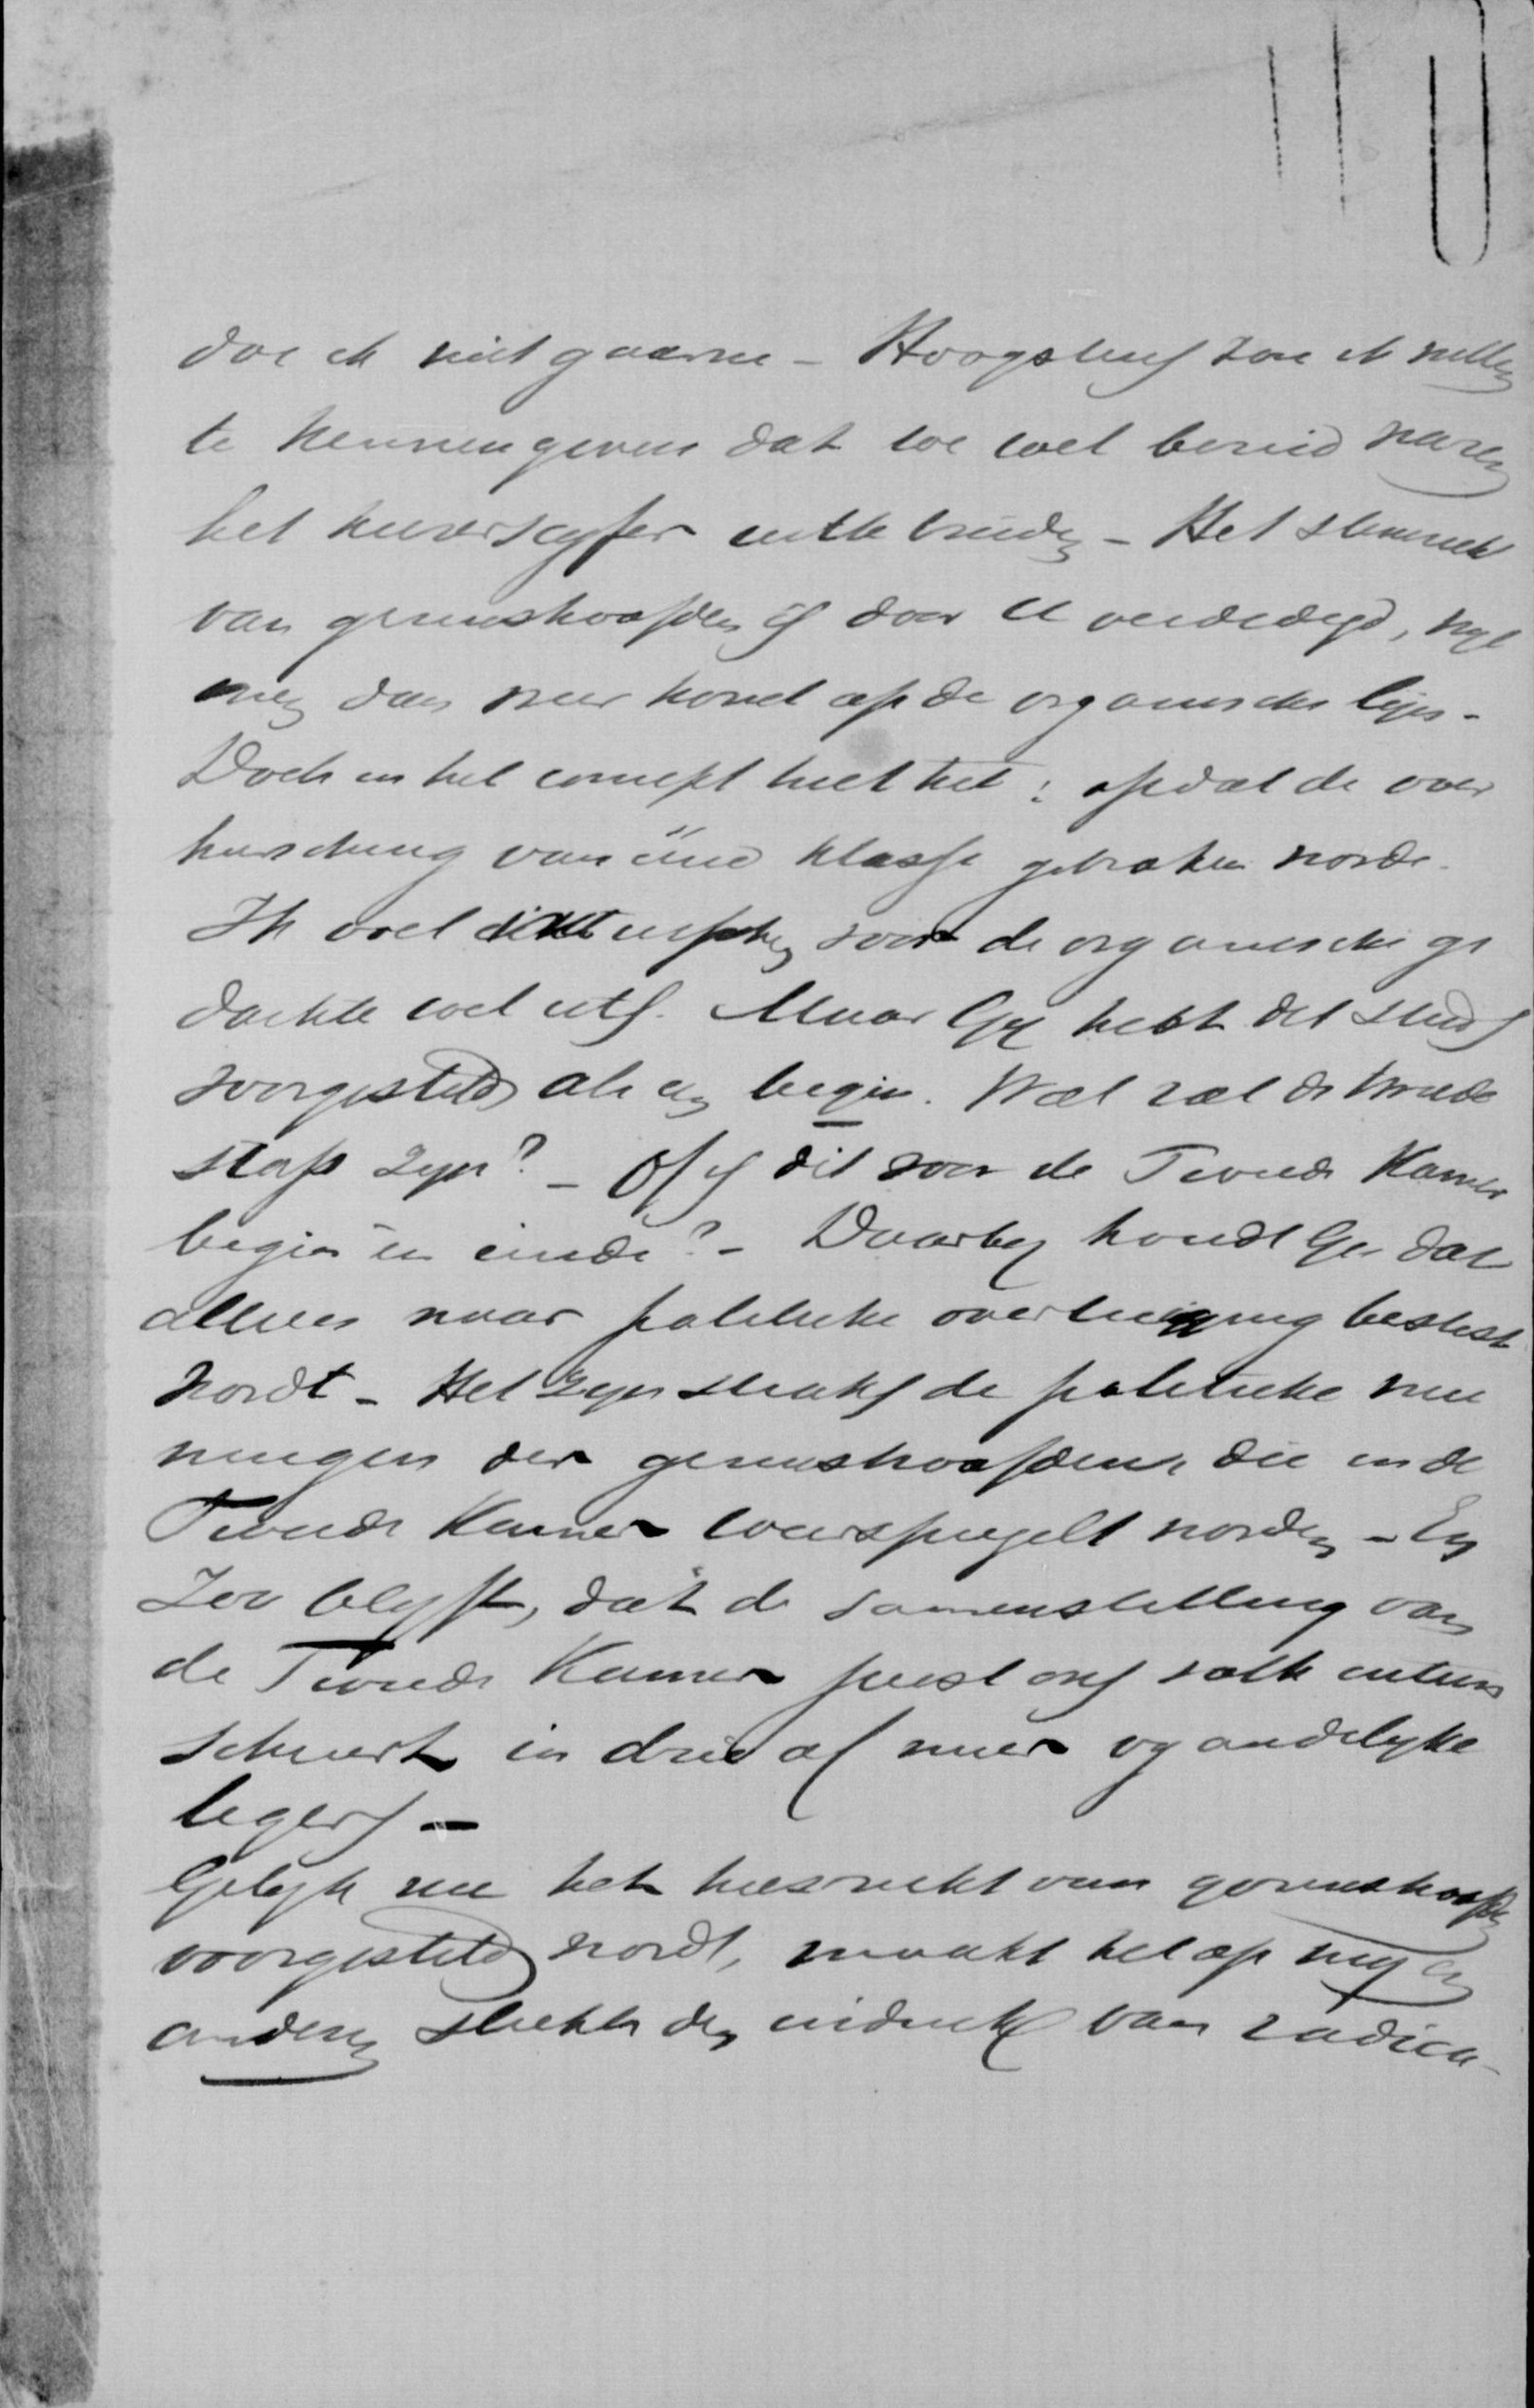 doe ik niet gaarne - Hoogstens zou ik willen
te kennen geven dat we wel bereid waren
het kiezerscyfer uit te breiden - Het stemrecht
van gezinshoofden is door U verdedigd, wyl
men dan meer komt op de organische lijn.
Doch in het concept heet het: opdat de over
heersching van ééne klasse gebroken worde.
Ik voel dit uitspreken voor de organische ge
dachte wel iets. Maar Gy hebt dit steeds
voorgesteld als een begin. Wat zal de tweede
stap zyn? - Of is dit voor de Tweede Kamer
begin en einde? - Daarby houdt Ge dat
alleen naar politieke overtuiging beslist
wordt - Het zyn straks de politieke mee
ningen der gezinshoofden, die in de
Tweede Kamer weerspiegelt worden - En
zoo blyft, dat de samenstelling van
de Tweede Kamer juist ons volk uiteen
scheurt in drie of meer vyandelyke
legers -
Gelyk nu het kiesrecht van gezinshoofden
voorgesteld wordt, maakt het op my en
anderen slechts den indruk van radica-